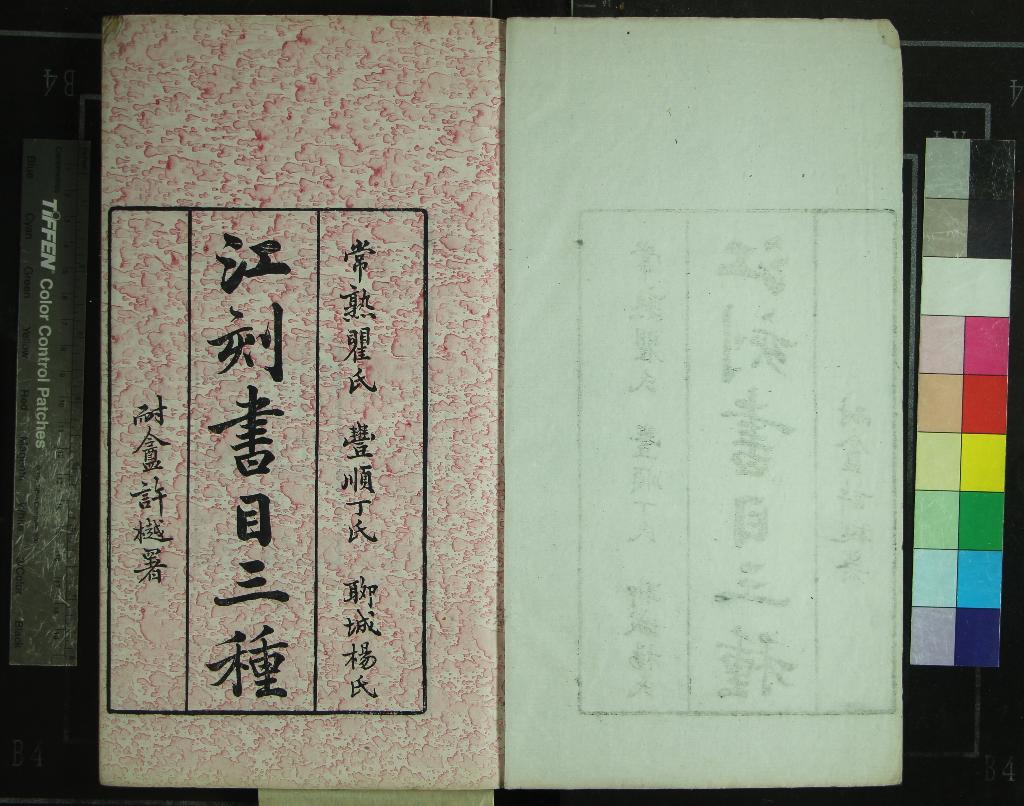 常熟瞿氏 豐順丁氏 聊城楊氏
江刻書目三種
耐盦許樾署
TIFFEN Color Control Patches
Blue
Cyan
Green
Yellow
Red
Magenta
Black
B4
B4
B4
A4